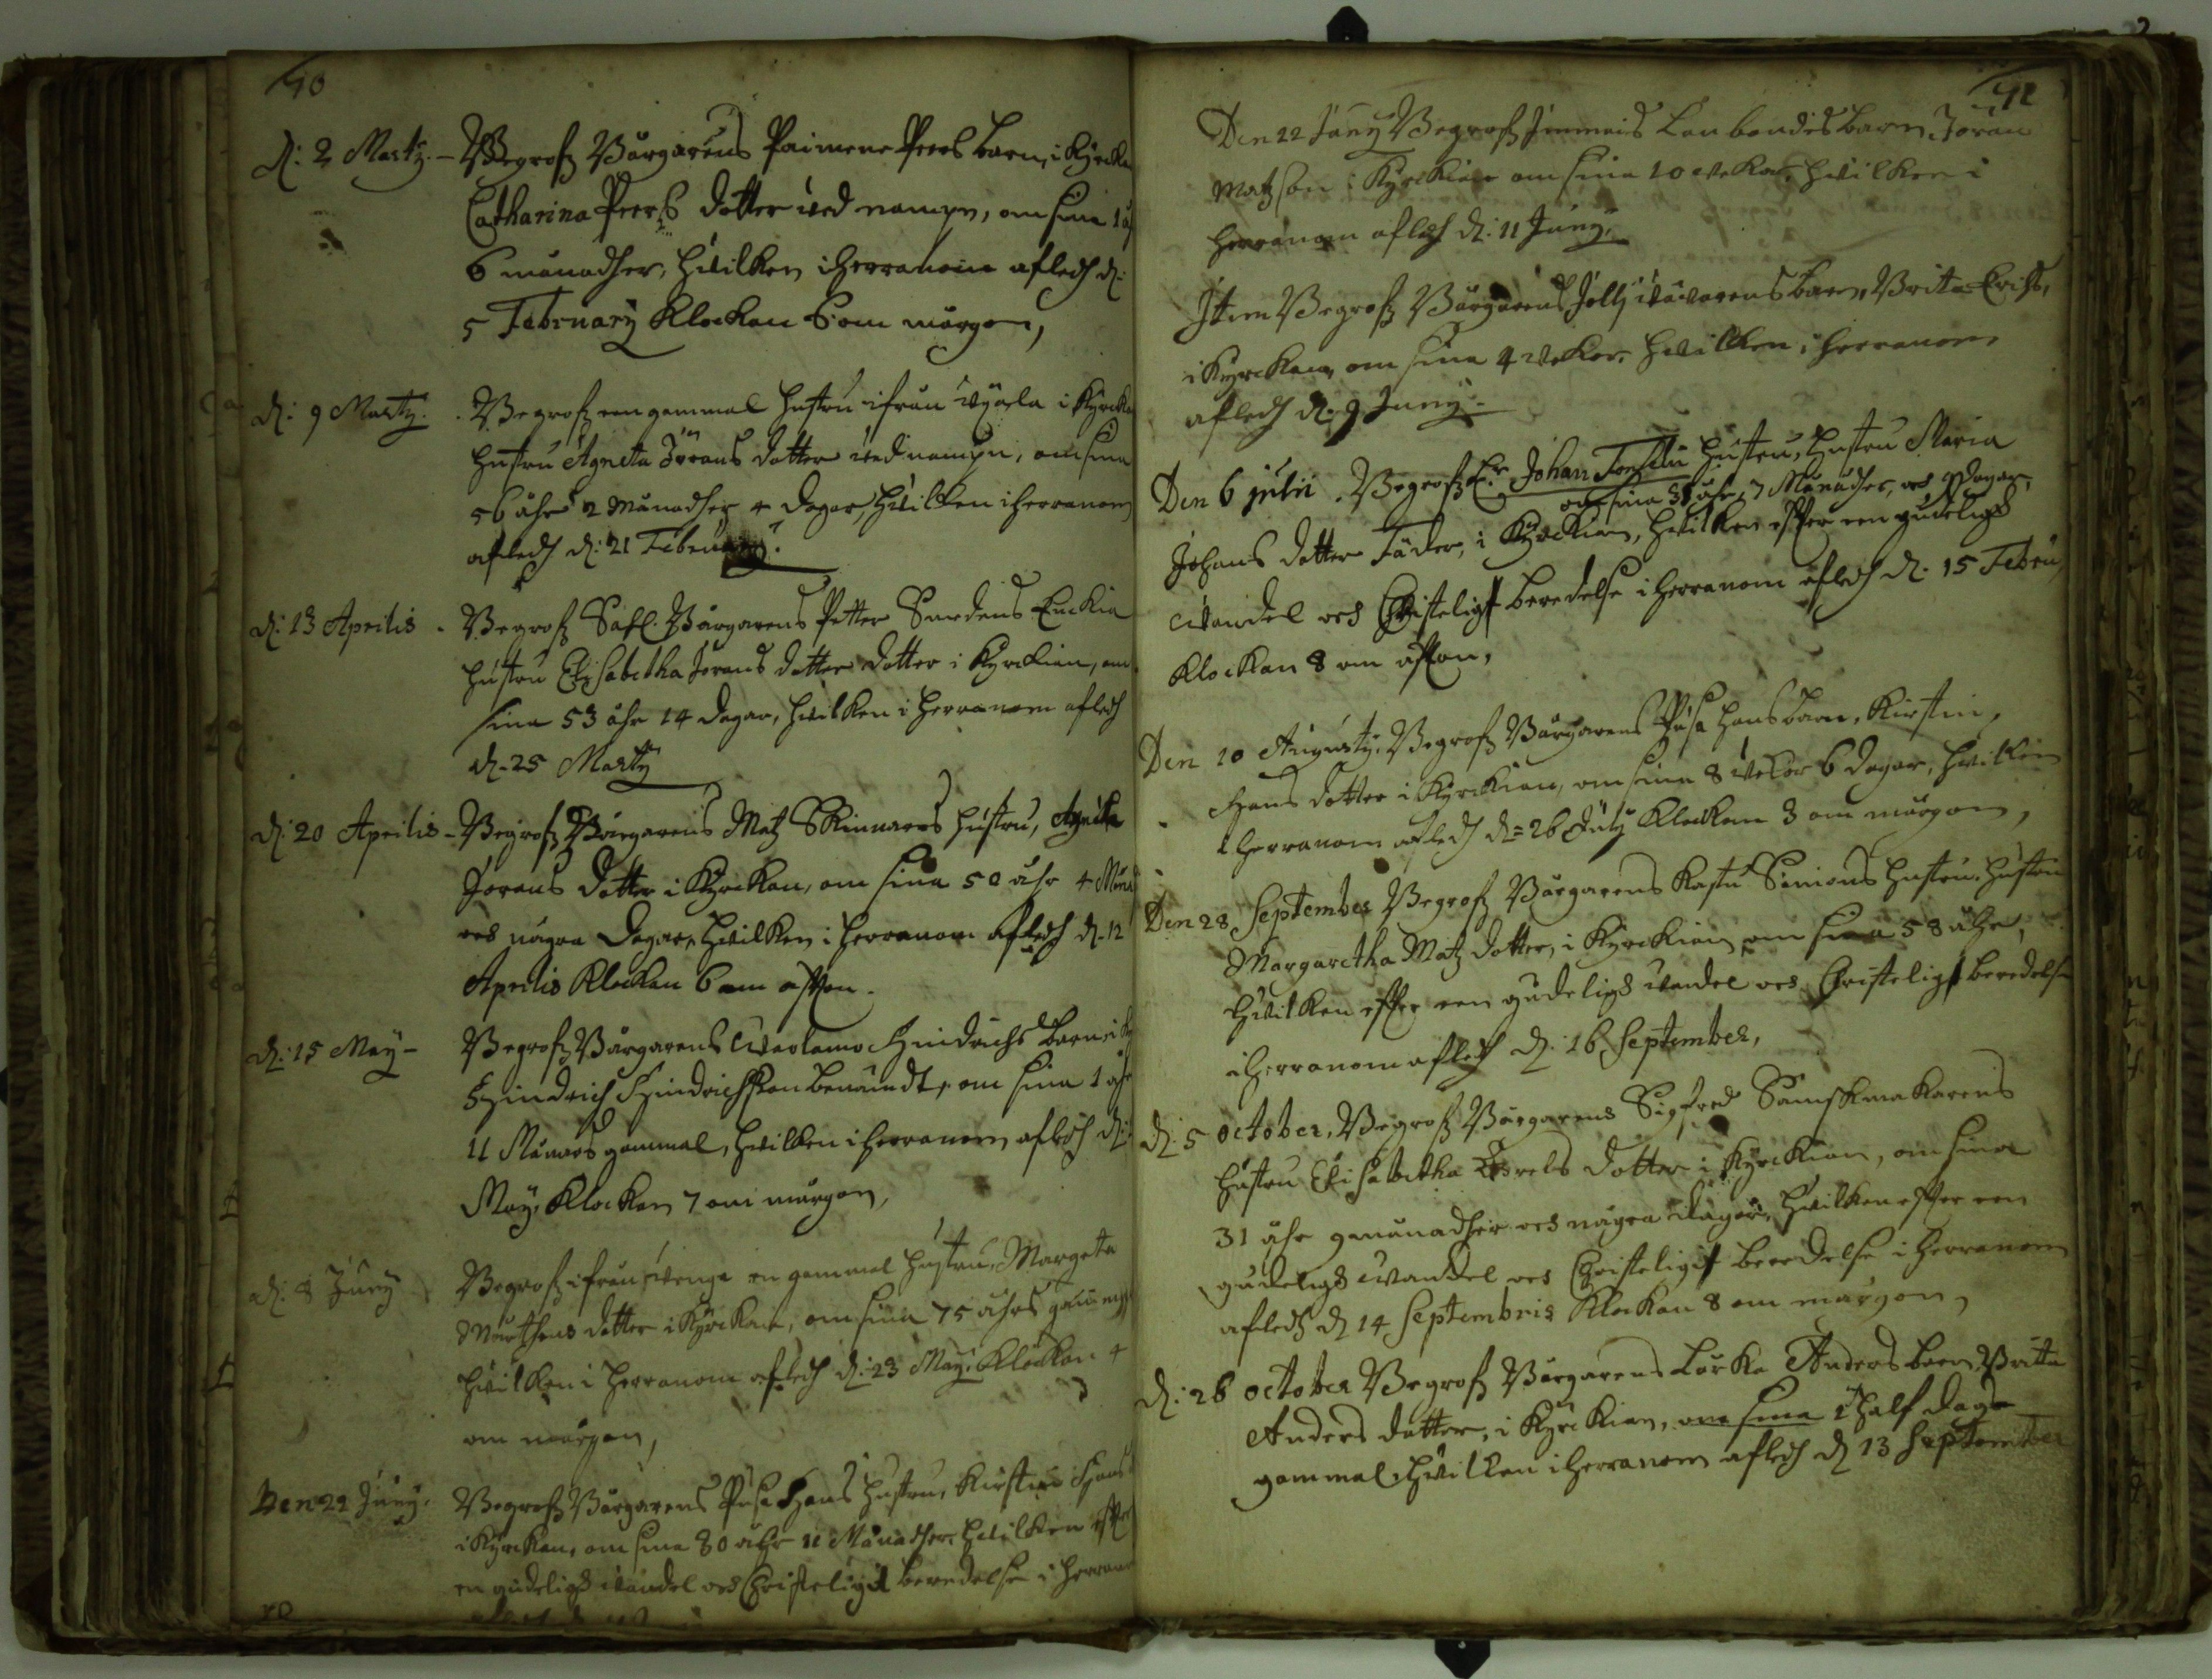 40
d: 2 Martij. – Begrofz Bårgarens Paimene Peers barn, i Kyrckan
Catharina Peers dotter wed nampn, om sina 1 åhr
6 månadher, hwilken i herranom afledh d:
5 February Klockan 6 om morgon,
d: 9 Martij. Begrofz een gammal hustru ifrån i Kyrckan
hustru Agneta Jörans dotter wed nampn, om sina
56 åhrs 2 Månadher 4 dagar, hwilken i herranom
afledh d: 21 February.
d: 13 Aprilis. Begrofz Sahl. Bårgarens Petter Enckia
hustru Elisabetha Jörans dotter dotter i Kyrckian, om
sina 53 åhr 14 dagar, hwilken i herranom afledh
d. 25 Martij
d: 20 Aprilis – Begrofz Bårgarens Matz Skinnares hustru, Agneta
Jörans dotter i Kyrckan, om sina 50 åhr 4 Mån
och några dagar, hwilken i herranom afledh d. 12
Aprilis Klockan 6 om afton.
d: 15 May – Begrofz Bårgarens Hindrichs barn, i
Hindrich Hindrichsson benämdt, om sina 1 åhr
11 Månars gammal, hwilken i herranom afledh d:
May, Klockan 7 om morgon,
d. 8 Juny Begrofz ifrån en gammal hustru, Margeta
Mårthens dotter i Kyrckan, om sina 75 åhrs
hwilken i herranom afledh d: 23 May, Klockan 4
om morgon,
Den 22 Juny. Begrofz Bårgarens Påsa Hans hustru, Kirstin Hans
i Kyrckan, om sina 80 åhr 11 Månadher, hwilken efter
en gudeligh wandel och Christeligit beredelse i herranom
41
Den 22 Juny Begrofz Lanbondes barn, Jöran
Matzson i Kyrckian om sina 10 wekor, hwilken i
herranom afledh d: 11 Juny,
Item Begrofz Bårgarens barn, Brita Erichs,
i Kyrckan, om sina 4 wekor, hwilken i herranom
afledh d. 9 Juny.
Den 6 julii. Begrofz Johan hustru, hustru Maria
om sina 38 åhr, 7 Månadher, och dagar,
Johans dotter, i Kyrckian, hwilken efter een gudeligh
wandel och Christeligit beredelse i herranom afledh d. 15 Febru,
Klockan 8 om afton,
Den 10 Augusty. Begrofz Bårgarens Påsa Hans barn, Kirstin,
Hans dotter i Kyrckian, om sina 8 wekor 6 dagar, hwilken
i herranom afledh d= 26 July Klockan 3 om morgon,
Den 28 September Begrofz Bårgarens Simons hustru, hustru
Margaretha Matz dotter, i Kyrckian om sina 58 åhr,
hwilken efter een gudeligh wandel och Christeligit beredelse
i herranom afledh d. 16 September,
d: 5 october, Begrofz Bårgarens Sigfred Sämskmakarens
hustru Elisabetha dotter i Kyrckian, om sina
31 åhr 9 månadher och några dagar, hwilken efter een
gudeligh wandel och Christeligit beredelse i herranom
afledh d 14 Septembris Klockan 8 om morgon,
d: 26 october Begrofz Bårgarens Anders barn Britta
Anders dotter, i Kyrckian, om sina 1 half dags
gammal, hwilken i herranom afledh d 13 September